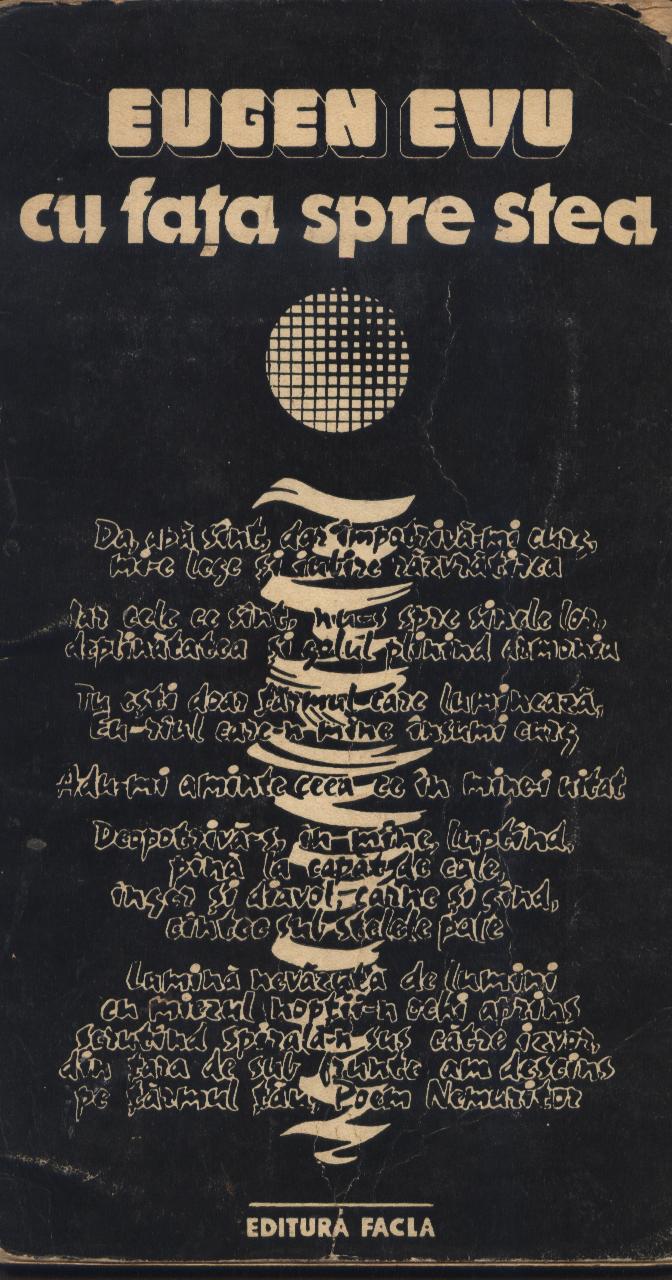 EUGEN EVU
cu fața spre stea
Da, apă sînt, dar împotrivă-mi curg,
mi-e lege și iubire răzvrătirea
Iar cele ce sînt, nu-s spre sinele lor,
deplinătatea și golul plinind armonia
Tu ești doar țărmul care luminează,
Eu-rîul care-n mine însumi curg
Adu-mi aminte ceea ce în mine-i uitat
Deopotrivă-s, in mine, luptînd,
pînă la capăt de cale,
înger și diavol, carne și gînd,
cîntec sub stelele pale
Lumină nevăzută de lumini
cu miezul nopții-n ochi aprins
scrutînd spirala-n sus către izvor,
din țara de sub frunte am descins
pe țărmul tău, Poem Nemuritor
EDITURA FACLA